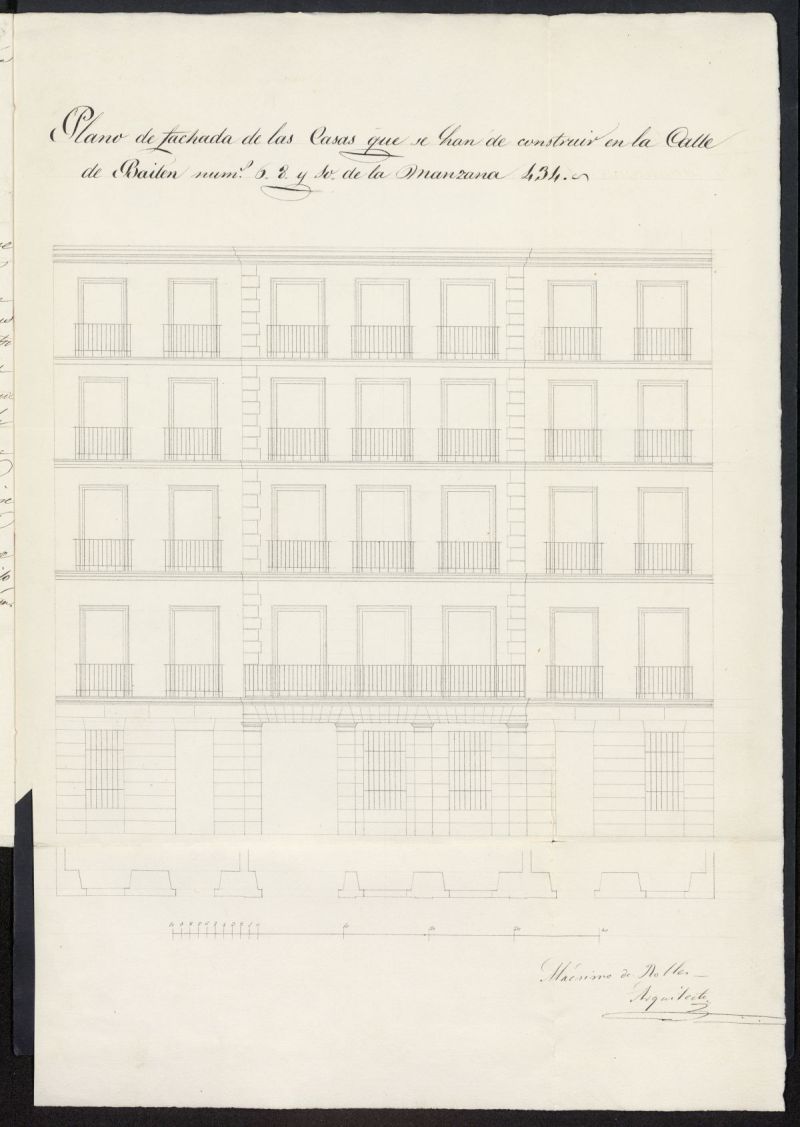 Plano de fachada de las Casas que se han de construir en la Calle
de Bailen num.º 6. 8. y 10. de la Manzana 434.
Máximo de Robles
Arquitecto